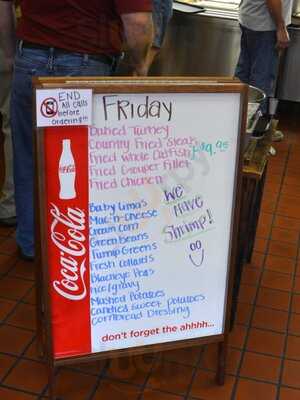 END
All calls
BEFORE
Ordering!!!
Friday
Baked Turkey
Country Fried Steak
Fried whole Catfish
Fried Grouper Fillet
Fried Chicken
$9.95
Baby Lima's
Mac-n-Cheese
Cream Corn
Green beans
Turnip Greens
Fried Collards
Blackeye Pea's
rice/gravy
Mashed Potatoes
Candied Sweet Potatoes
Cornbread Dressing
We
Have
Shrimp!
Coca-Cola
don't forget the ahhhh...